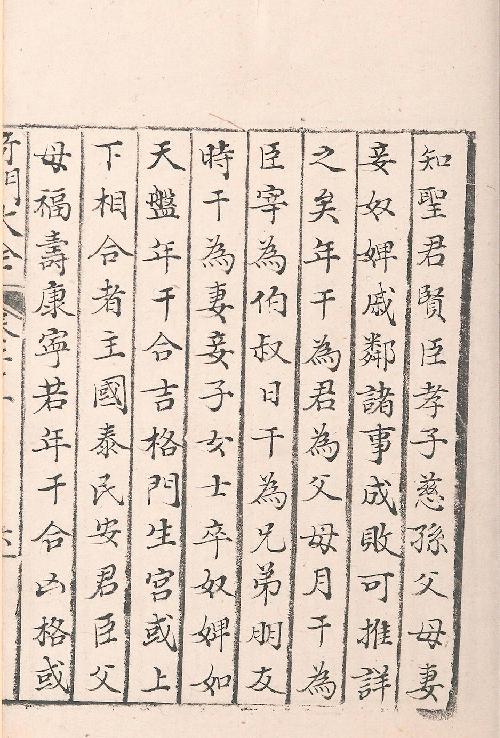 知聖君賢臣孝子慈孫父母妻
妾奴婢戚鄰諸事成敗可推詳
之矣年干為君為父母月干為
臣宰為伯叔日干為兄弟朋友
時干為妻妾子女士卒奴婢如
天盤年干合吉格門生宮或上
下相合者主國泰民安君臣父
母福壽康寧若年干合凶格或
奇門大全